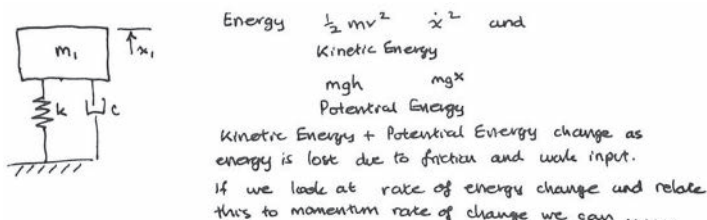 Energy ½ mv² ẋ² and
Kinetic Energy
m₁ x₁
mgh mgx
k c
Potential Energy
Kinetic Energy + Potential Energy change as
energy is lost due to friction and work input.
If we look at rate of energy change and relate
this to momentum rate of change we can